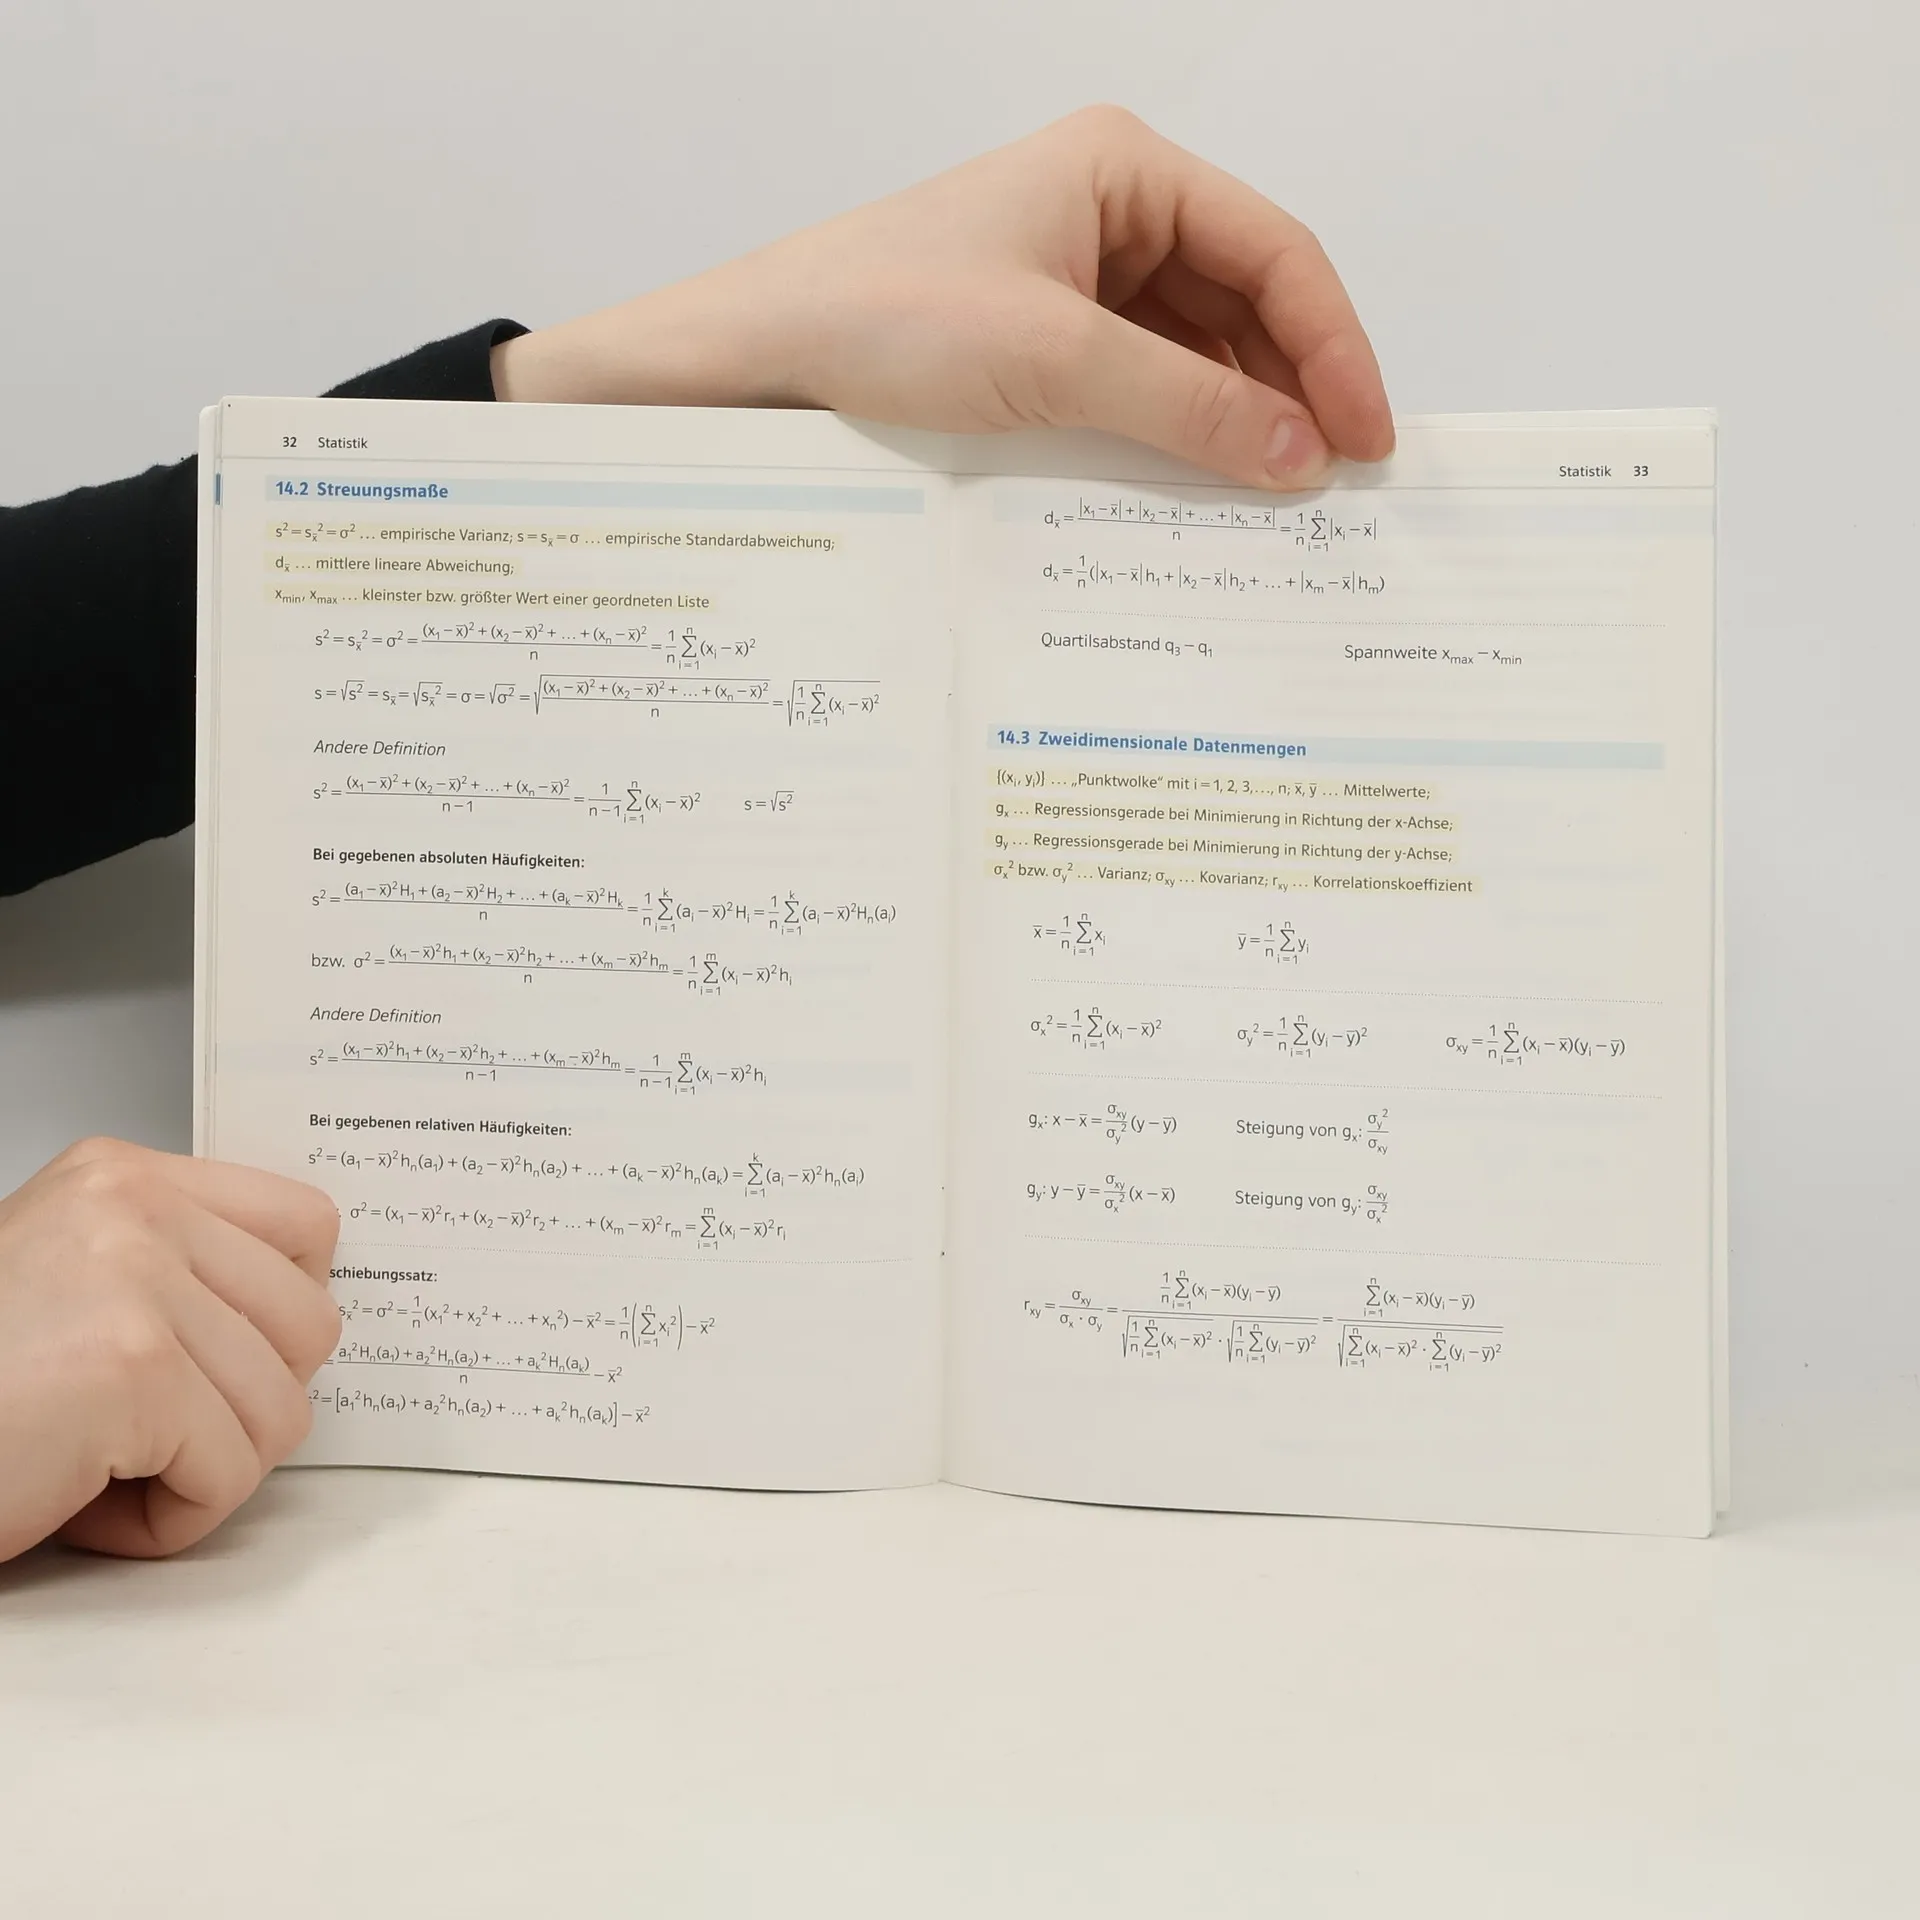 32 Statistik
14.2 Streuungsmaße
s² = s_x̄² = σ² … empirische Varianz; s = s_x̄ = σ … empirische Standardabweichung;
d_x̄ … mittlere lineare Abweichung;
x_min, x_max … kleinster bzw. größter Wert einer geordneten Liste
s² = s_x̄² = σ² = ((x₁ − x̄)² + (x₂ − x̄)² + … + (xₙ − x̄)²)/n = 1/n ∑_{i=1}^{n} (x_i − x̄)²
s = √(s²) = s_x̄ = √(s_x̄²) = σ = √(σ²) = √(((x₁ − x̄)² + (x₂ − x̄)² + … + (xₙ − x̄)²)/n) = √(1/n ∑_{i=1}^{n} (x_i − x̄)²)
Andere Definition
s² = ((x₁ − x̄)² + (x₂ − x̄)² + … + (xₙ − x̄)²)/(n−1) = 1/(n−1) ∑_{i=1}^{n} (x_i − x̄)² s = √(s²)
Bei gegebenen absoluten Häufigkeiten:
s² = ((a₁ − x̄)² H₁ + (a₂ − x̄)² H₂ + … + (a_k − x̄)² H_k)/n = 1/n ∑_{i=1}^{k} (a_i − x̄)² H_i = 1/n ∑_{i=1}^{k} (a_i − x̄)² Hₙ(a_i)
bzw. σ² = ((x₁ − x̄)² h₁ + (x₂ − x̄)² h₂ + … + (x_m − x̄)² h_m)/n = 1/n ∑_{i=1}^{m} (x_i − x̄)² h_i
Andere Definition
s² = ((x₁ − x̄)² h₁ + (x₂ − x̄)² h₂ + … + (x_m − x̄)² h_m)/(n−1) = 1/(n−1) ∑_{i=1}^{m} (x_i − x̄)² h_i
Bei gegebenen relativen Häufigkeiten:
s² = (a₁ − x̄)² hₙ(a₁) + (a₂ − x̄)² hₙ(a₂) + … + (a_k − x̄)² hₙ(a_k) = ∑_{i=1}^{k} (a_i − x̄)² hₙ(a_i)
σ² = (x₁ − x̄)² r₁ + (x₂ − x̄)² r₂ + … + (x_m − x̄)² r_m = ∑_{i=1}^{m} (x_i − x̄)² r_i
schiebungssatz:
s_x̄² = σ² = 1/n (x₁² + x₂² + … + xₙ²) − x̄² = 1/n (∑_{i=1}^{n} x_i²) − x̄²
= (a₁² Hₙ(a₁) + a₂² Hₙ(a₂) + … + a_k² Hₙ(a_k))/n − x̄²
² = [a₁² hₙ(a₁) + a₂² hₙ(a₂) + … + a_k² hₙ(a_k)] − x̄²
Statistik 33
d_x̄ = (|x₁ − x̄| + |x₂ − x̄| + … + |xₙ − x̄|)/n = 1/n ∑_{i=1}^{n} |x_i − x̄|
d_x̄ = 1/n (|x₁ − x̄| h₁ + |x₂ − x̄| h₂ + … + |x_m − x̄| h_m)
Quartilsabstand q₃ − q₁ Spannweite x_max − x_min
14.3 Zweidimensionale Datenmengen
{(x_i, y_i)} … „Punktwolke“ mit i = 1, 2, 3,…, n; x̄, ȳ … Mittelwerte;
g_x … Regressionsgerade bei Minimierung in Richtung der x-Achse;
g_y … Regressionsgerade bei Minimierung in Richtung der y-Achse;
σ_x² bzw. σ_y² … Varianz; σ_xy … Kovarianz; r_xy … Korrelationskoeffizient
x̄ = 1/n ∑_{i=1}^{n} x_i ȳ = 1/n ∑_{i=1}^{n} y_i
σ_x² = 1/n ∑_{i=1}^{n} (x_i − x̄)² σ_y² = 1/n ∑_{i=1}^{n} (y_i − ȳ)² σ_xy = 1/n ∑_{i=1}^{n} (x_i − x̄)(y_i − ȳ)
g_x: x − x̄ = σ_xy/σ_y² (y − ȳ) Steigung von g_x: σ_y²/σ_xy
g_y: y − ȳ = σ_xy/σ_x² (x − x̄) Steigung von g_y: σ_xy/σ_x²
r_xy = σ_xy/(σ_x · σ_y) = (1/n ∑_{i=1}^{n} (x_i − x̄)(y_i − ȳ))/(√(1/n ∑_{i=1}^{n} (x_i − x̄)²) · √(1/n ∑_{i=1}^{n} (y_i − ȳ)²)) = (∑_{i=1}^{n} (x_i − x̄)(y_i − ȳ))/√(∑_{i=1}^{n} (x_i − x̄)² · ∑_{i=1}^{n} (y_i − ȳ)²)